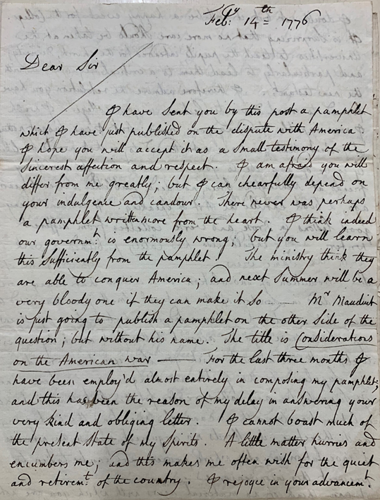 Feby 14th 1776
Dear Sir
I have sent you by this post a pamphlet
which I have just published on the dispute with America.
I hope you will accept it as a small testimony of the
sincerest affection and respect. I am afraid you will
differ from me greatly; but I can chearfully depend on
your indulgence and candour. There never was perhaps
a pamphlet written more from the heart. I think indeed
our governmt is enormously wrong; but you will learn
this sufficiently from the pamphlet. The ministry think they
are able to conquer America; and next Summer will be a
very bloody one if they can make it so — Mr Mauduit
is just going to publish a pamphlet on the other side of the
question; but without his name. The title is Considerations
on the American war — For the last three months I
have been employ'd almost entirely in composing my pamphlet,
and this has been the reason of my delay in answering your
very kind and obliging letter. I cannot boast much of
the present state of my spirits. A little matter hurries and
encumbers me; and this makes me often wish for the quiet
and retiremt of the country. I rejoyce in your advancemt